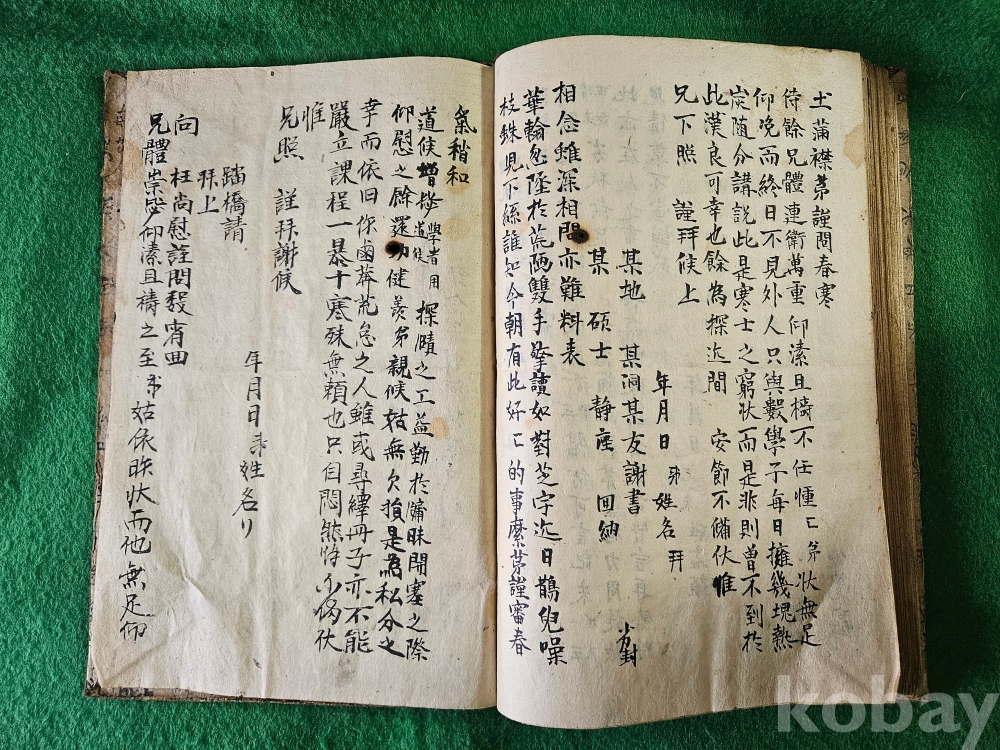 土蒲襟茅謹問春寒
侍餘兄體連衛萬重 仰溸且禱不任慬〻 弟狀無足
仰晩而終日不見外人只與數學子每日擁幾塊熱
炭隨分講說此是寒士之窮狀而是非則曾不到於
此漢良可幸也餘為探近間 安節不備伏惟
兄下照 謹拜候上
年月日 弟姓名 拜
某地 某洞某友謝書
某 碩士 靜座 回納
相念雖深相問亦難料表
華翰忽墜於荒陋雙手擎讀如對芝宇近日鵲兒噪
枝蛛見下絲誰知今朝有此好〻的事麽茅謹審春
氣稍和
道候增 學者用道候 探賾之工益勤於蒲昧開塞之際
仰慰之餘還切健羨弟親候姑無欠損是為私分之
幸而依旧你鹵莽荒怠之人雖或尋繹冊子亦不能
嚴立課程一暴十寒殊無賴也只自悶 伏
惟
兄照 謹拜謝候
年月日 弟姓名
踏橋請
拜上
向 枉尚慰謹問 宵曲
兄體崇毖仰溸且禱之至弟姑依昨狀而他無足仰